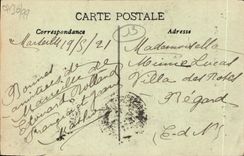 CARTE POSTALE
Correspondance
Adresse
Marseille 19/5/21
Bonnes
amitiés de
Marseille
Edouard Rolland
François et Jean
Mademoiselle
Lucas
Villa des Roses
Régard
C-d-N